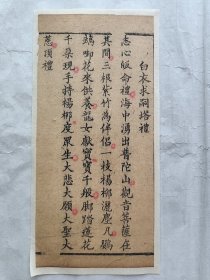 白衣求嗣塔禮
志心皈命禮海中湧出普陀山觀音菩薩在
其間三根紫竹為伴侶一枝楊柳灑塵凡鸚
鵡啣花來供養龍女獻寶寶千般腳踏蓮花
千朵現手持楊柳度眾生大悲大願大聖大
慈頂禮